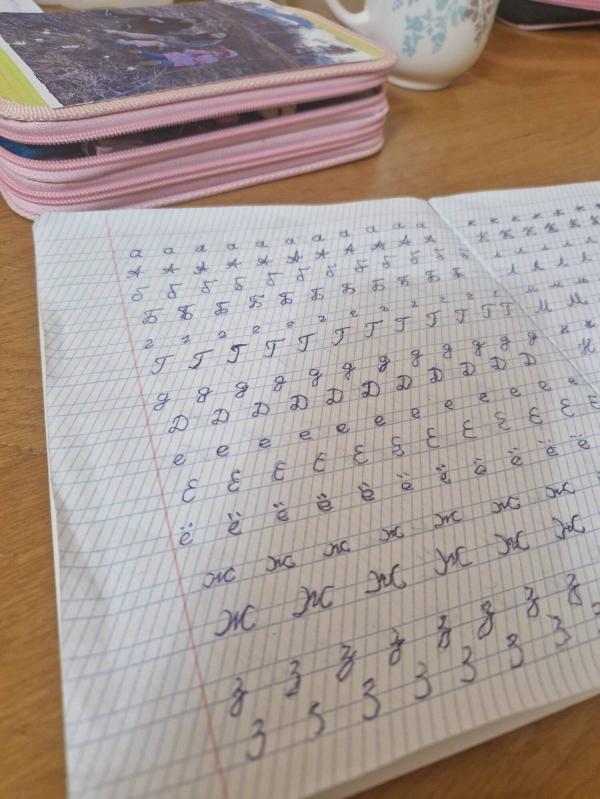 а а а а а а а а а а а
А А А А А А А А А А А
б б б б б б б б б б б б
Б Б Б Б Б Б Б Б Б Б Б
г г г г г г г г г г г г
Г Г Г Г Г Г Г Г Г Г Г Г
д д д д д д д д д д д д
Д Д Д Д Д Д Д Д Д Д Д
е е е е е е е е е е е е
Е Е Е Е Е Е Е Е Е Е Е Е
ё ё ё ё ё ё ё ё ё ё ё
ж ж ж ж ж ж ж
Ж Ж Ж Ж Ж Ж
з з з з з з з з
З З З З З З З З
к к к к к к к
К К К К К К
л л л л л
Л Л Л Л
м м м
М М
н н
Н